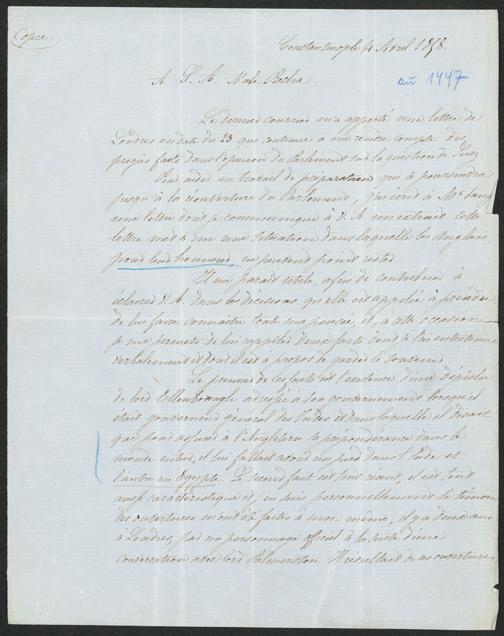 Copie.
Constantinople 4 Avril 1858.
n° 1447
A S. A. Pacha.
Le dernier courrier m'a apporté une lettre de
Londres en date du 23 qui continue à me rendre compte des
progrès faits dans l'opinion du Parlement sur la question de Suez.
Pour aider au travail de préparation qui se poursuivra
jusqu'à la réouverture du Parlement, j'ai écrit à Mr
une lettre dont je communique à V. A. un extrait. Cette
lettre met à nu une situation dans laquelle les Anglais
pour leur honneur, ne peuvent point rester.
Il me parait utile, afin de contribuer à
éclairer V. A. dans les décisions qu'elle est appelée à prendre
de lui faire connaître toute ma pensée, et, à cette occasion
je me permets de lui rappeler deux faits dont je l'ai entretenue
verbalement et dont il est à propos de garder le souvenir.
Le premier de ces faits est l'existence d'une dépêche
de lord Ellenborough adressée à son gouvernement lorsqu'il
était gouverneur général des Indes et dans laquelle il disait
que pour assurer à l'Angleterre la prépondérance dans le
monde entier, il lui fallait avoir un pied dans l'Inde et
l'autre en Egypte. Le second fait est tout récent, il est tout
aussi caractéristique et j'en suis personnellement le témoin
des ouvertures en ont été faites à moi même, il y a deux ans
à Londres, par un personnage officiel à la suite d'une
conversation avec lord Palmerston. Il résultait de ces ouvertures